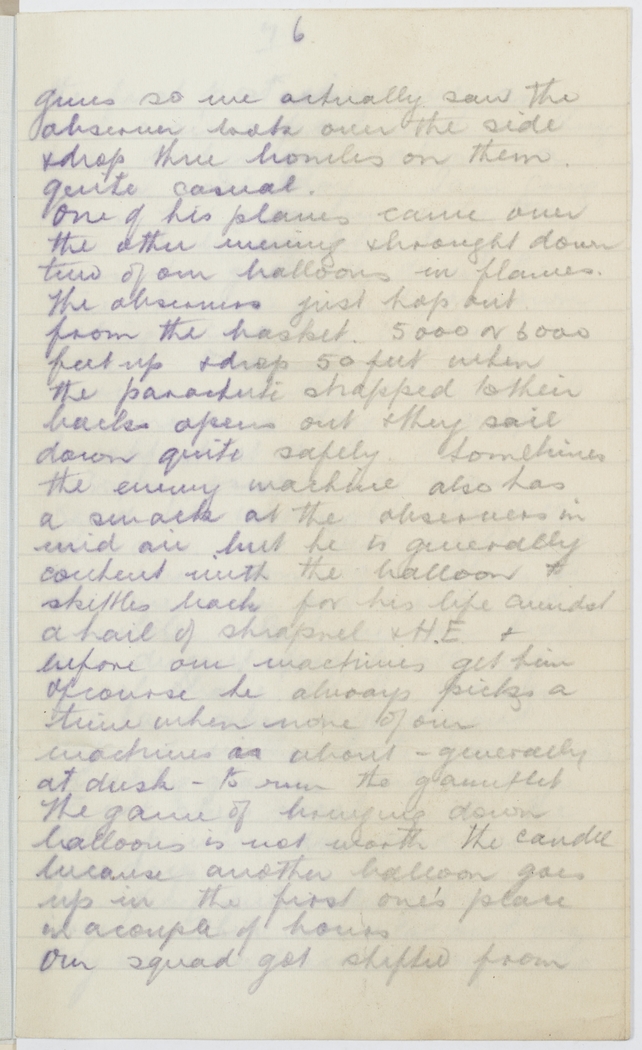 6
guns so we actually saw the
observer look over the side
& drop three bombs on them.
quite casual.
One of his planes came over
the other evening & brought down
two of our balloons in flames.
The observers just hop out
from the basket. 5000 or 6000
feet up & drop 50 feet when
the parachute strapped to their
backs opens out & they sail
down quite safely. Sometimes
the enemy machine also has
a smack at the observers in
mid air but he is generally
content with the balloon &
skiftles back for his life amidst
a hail of shrapnel & H.E. &
before our machines get him
Of course he always picks a
time when none of our
machines are about - generally
at dusk - to run the gauntlet
The game of bringing down
balloons is not worth the candle
because another balloon goes
up in the first one's place
in a couple of hours
Our squad got shifted from